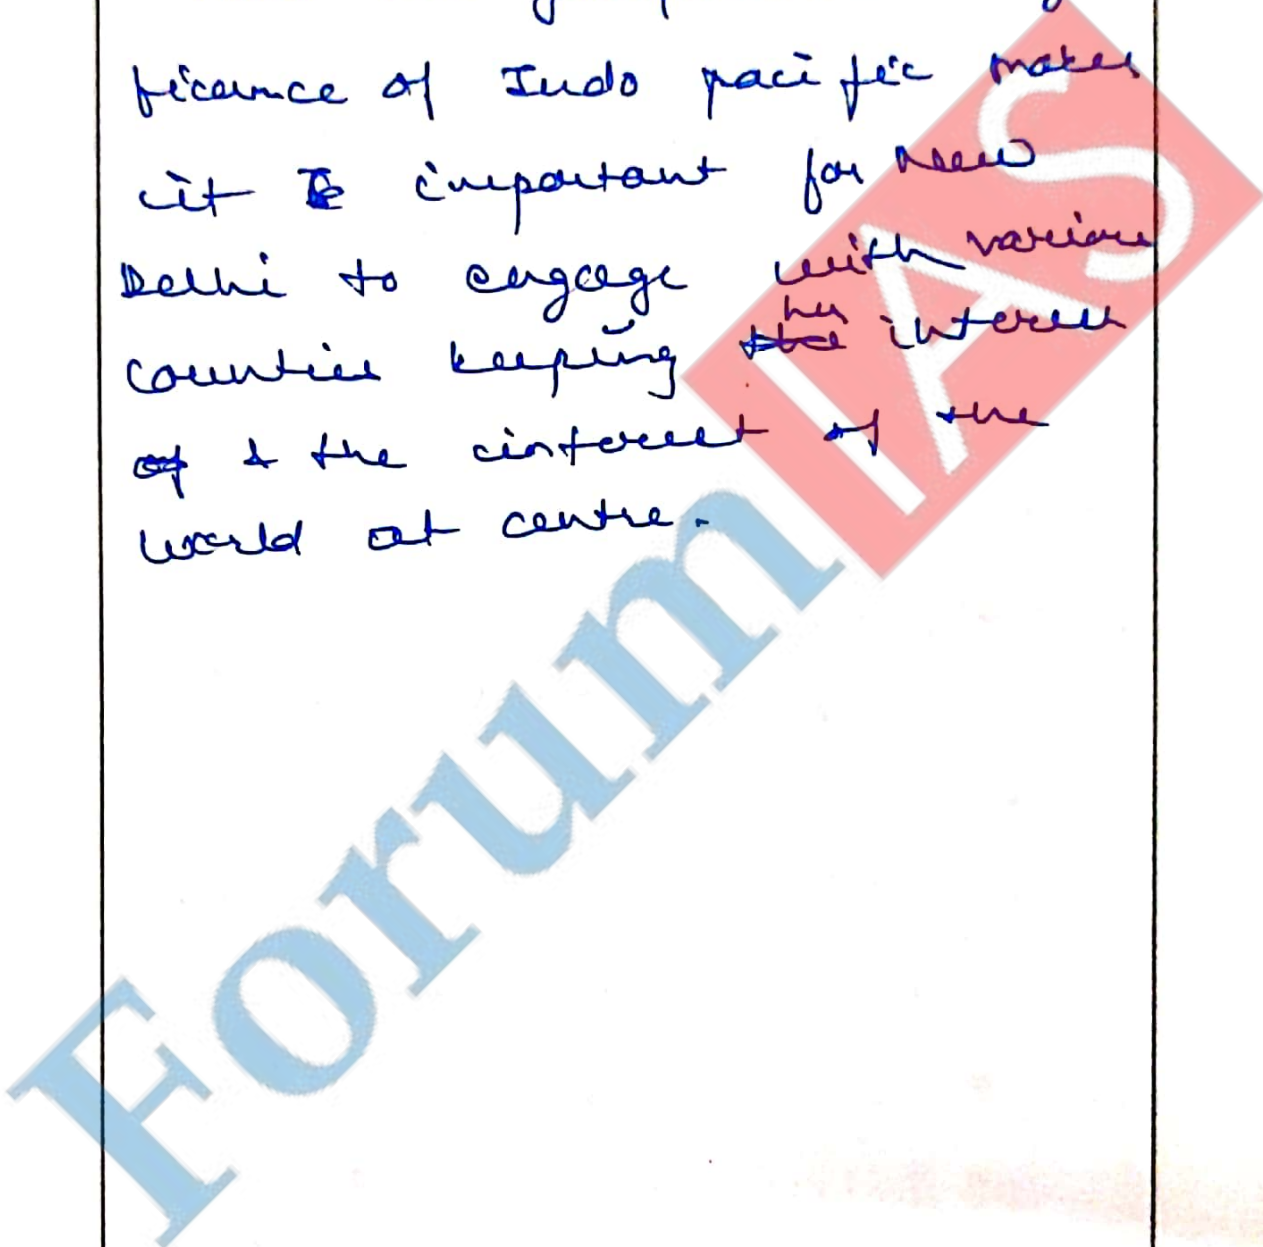 ficance of Indo pacific makes
it is important for New
Delhi to engage with various
counties keeping the her interest
of & the interest of the
world at centre.
ForumIAS